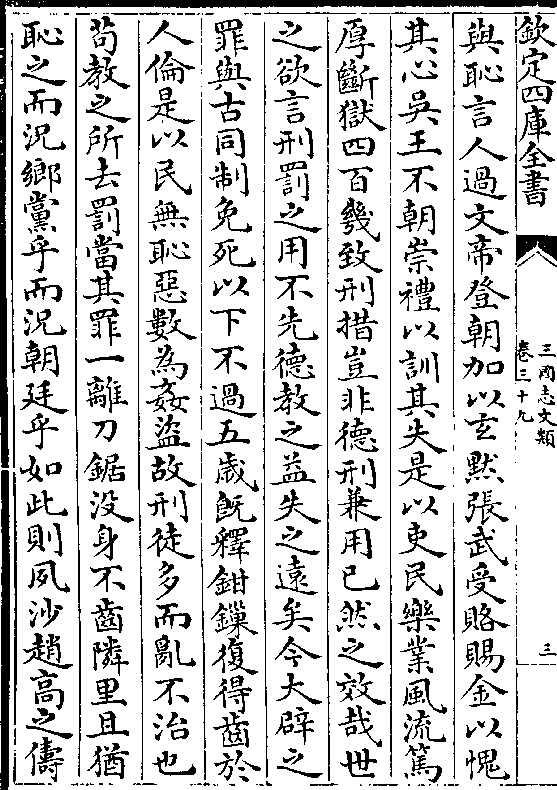 欽定四庫全書
三國志文類
卷三十九
三
與恥言人過文帝登朝加以玄黙張武受賂賜金以愧
其心吳王不朝崇禮以訓其失是以吏民樂業風流篤
厚斷獄四百幾致刑措豈非德刑兼用已然之效哉世
之欲言刑罰之用不先德教之益失之遠矣今大辟之
罪與古同制免死以下不過五歲既釋鉗鏁復得齒於
人倫是以民無恥惡數為姦盜故刑徒多而亂不治也
苟教之所去罰當其罪一離刀鋸没身不齒隣里且猶
恥之而況鄉黨乎而況朝廷乎如此則夙沙趙高之儔